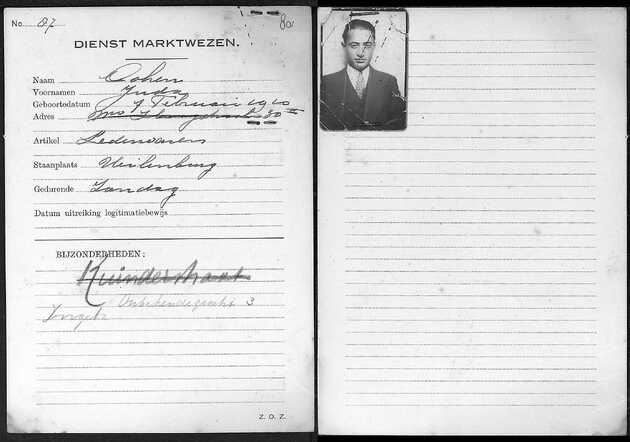 No 87 80
DIENST MARKTWEZEN.
Naam Cohen
Voornamen Juda
Geboortedatum 1 Februari 1910
Adres 30 III
Artikel Lederwaren
Staanplaats Uilenburg
Gedurende Zondag
Datum uitreiking legitimatiebewijs
BIJZONDERHEDEN:
Kuinderstraat
Onbekendegracht 3
Z. O. Z.